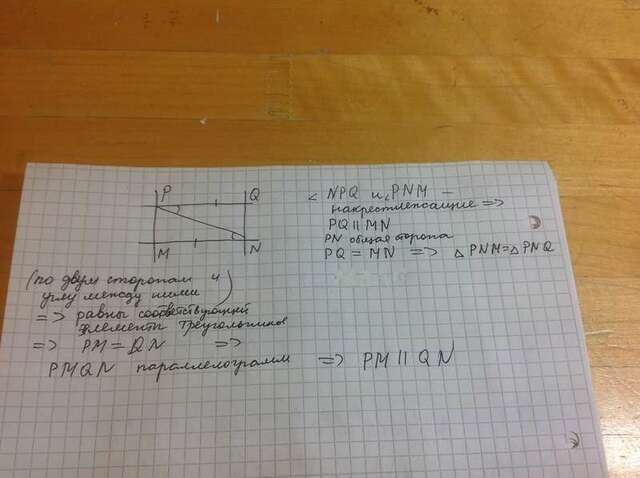 P
Q
M
N
< NPQ и < PNM –
накрестлежащие =>
PQ || MN
PN общая сторона
PQ = MN => △ PNM = △ PNQ
(по двум сторонам и
углу между ними)
=> равны соответствующий
элементы треугольников
=> PM = QN =>
PMQN параллелограмм => PM || QN